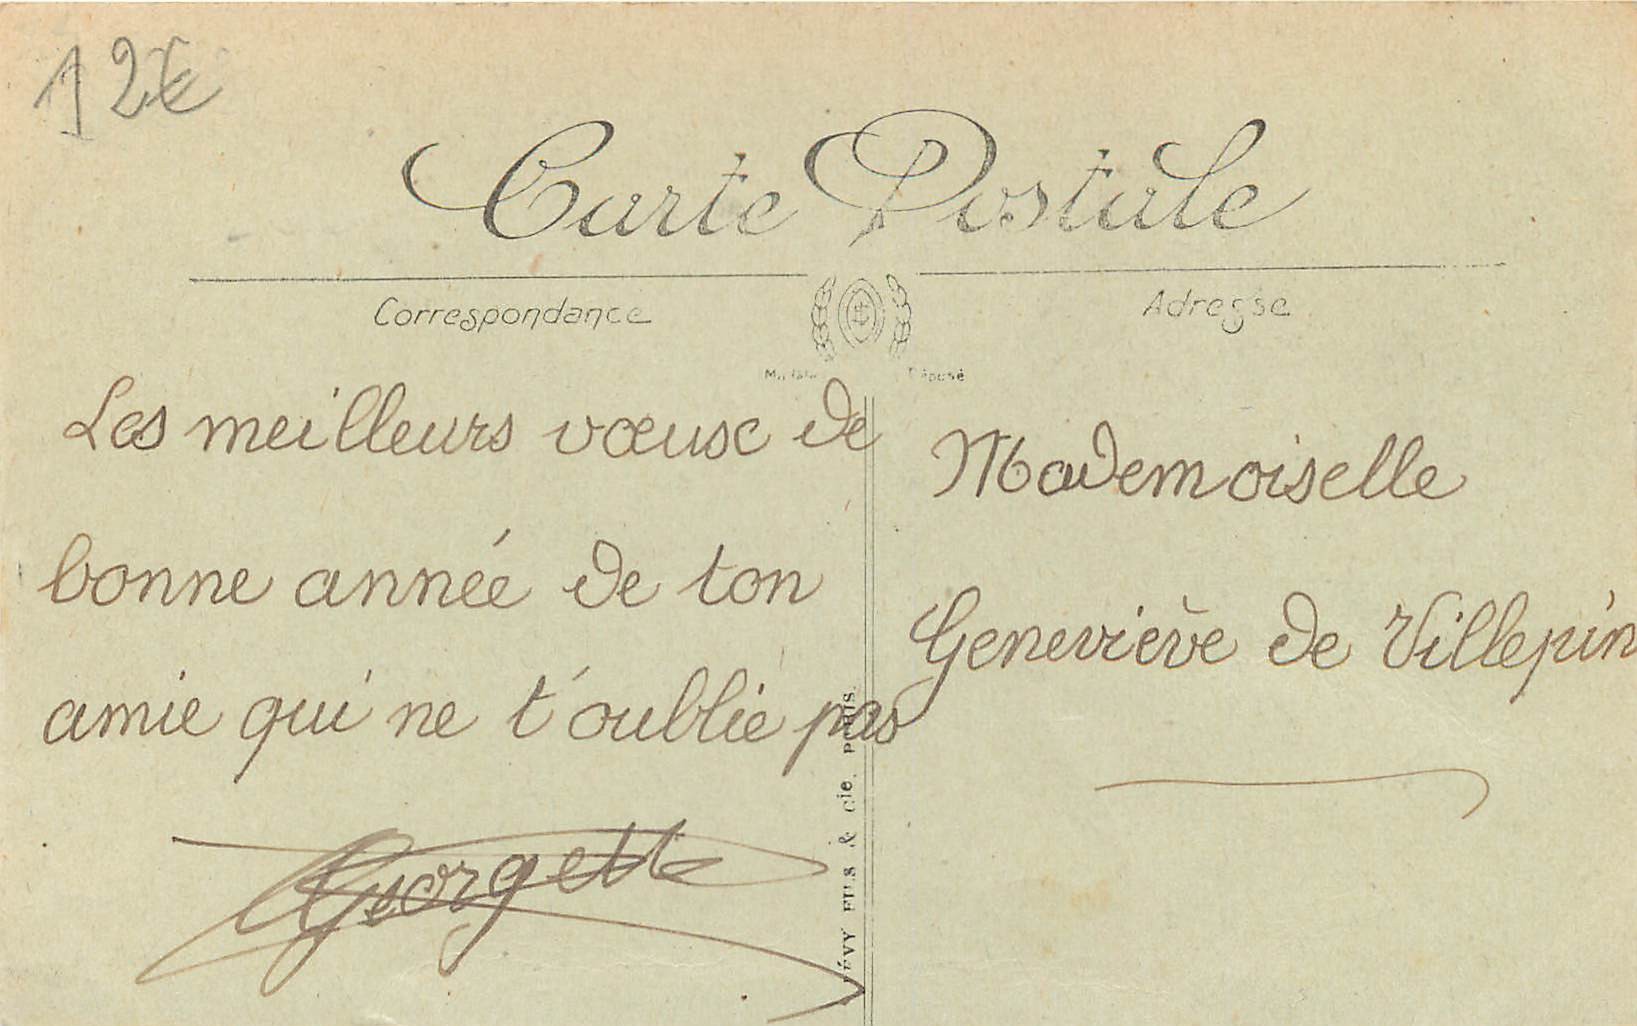 12€
Carte Postale
Correspondance
Adresse
LL
Modèle Déposé
Les meilleurs vœux de
bonne année de ton
amie qui ne t'oublie pas
Georgette
LÉVY FILS & Cie. PARIS.
Mademoiselle
Geneviève de Villepin